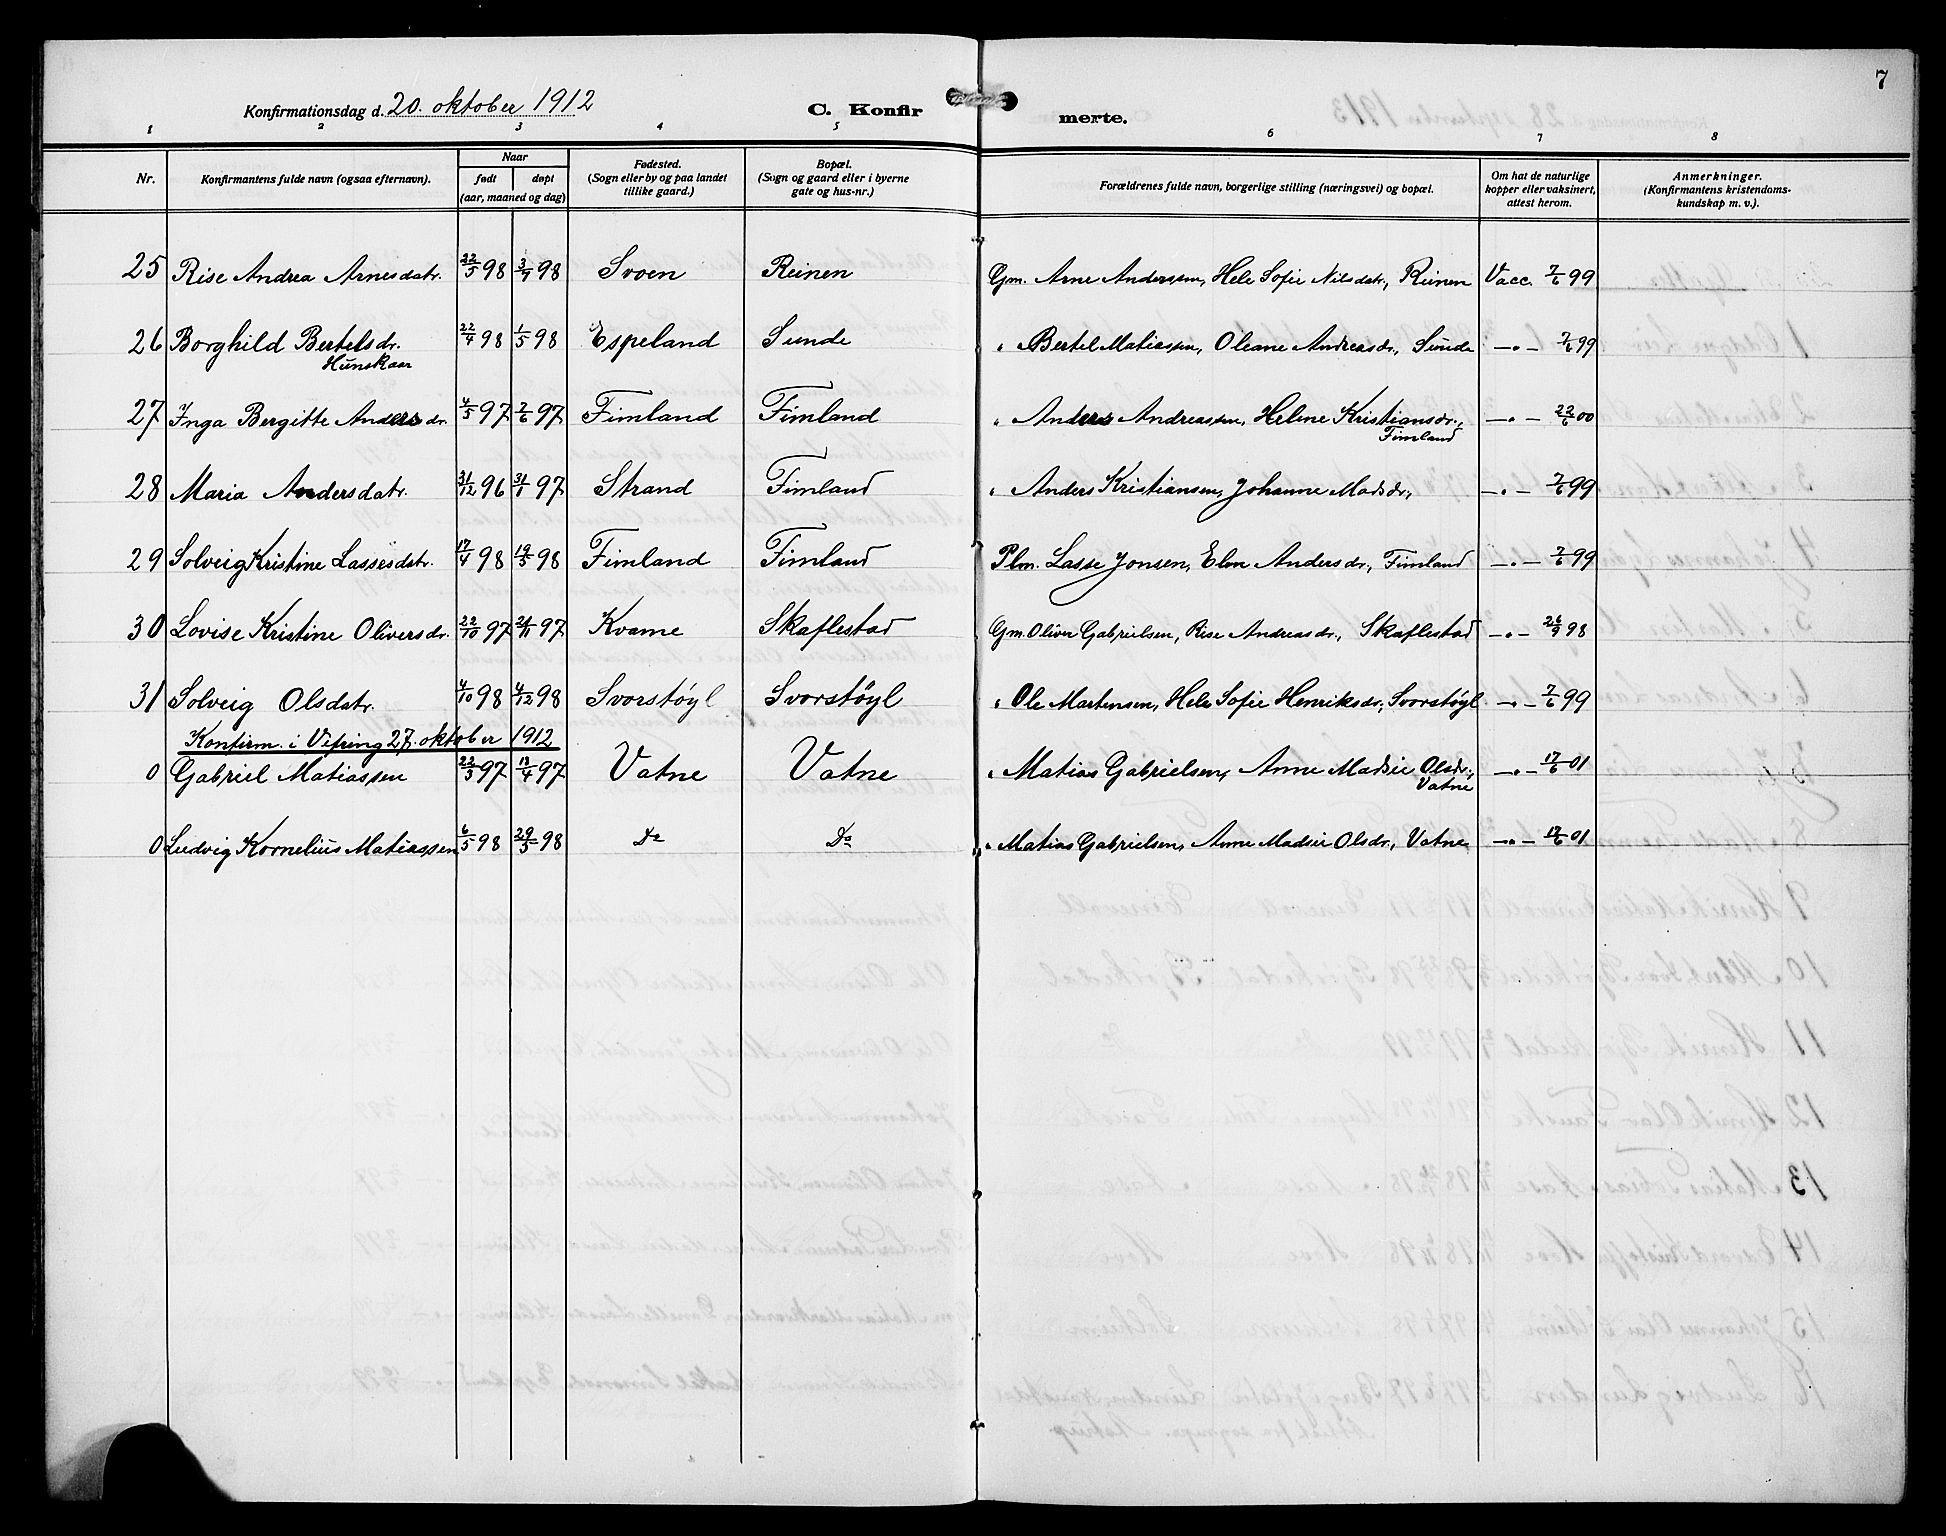 7
Konfirmationsdag d. 20. oktober 1912 C. Konfir merte.
1 2 3 4 5 6 7 8
Nr. Konfirmantens fulde navn (ogsaa efternavn). Naar født døpt (aar, maaned og dag) Fødested. (Sogn eller by og paa landet tillike gaard.) Bopæl. (Sogn og gaard eller i byerne gate og hus-nr.) Forældrenes fulde navn, borgerlige stilling (næringsvei) og bopæl. Om hat de naturlige kopper eller vaksinert, attest herom. Anmerkninger. (Konfirmantens kristendoms-kundskap m. v.).
25 Rise Andrea Arnesdatr. 22/5 98 3/7 98 Svoen Reinen Gm. Arne Andersen, Hele Sofie Nilsdatr., Reinen Vacc. 7/6 99
26 Borghild Bertelsdr. 22/4 98 1/5 98 Espeland Sunde " Bertel Matiassen, Oleane Andreasdr., Sunde —"— 7/6 99
Hunskaar
27 Inga Bergitte Andersdr. 4/5 97 7/6 97 Fimland Fimland " Anders Andreassen, Helene Kristiansdr., —"— 22/6 00
Fimland
28 Maria Andersdatr. 31/12 96 31/1 97 Strand Fimland " Anders Kristiansen, Johanne Madsdr., —"— 7/6 99
29 Solveig Kristine Lassesdatr. 17/4 98 19/5 98 Fimland Fimland Plm. Lasse Jonsen, Elen Andersdr., Fimland —"— 7/6 99
30 Lovise Kristine Oliversdr. 22/10 97 21/11 97 Kvame Skaflestad Gm. Oliver Gabrielsen, Rise Andreasdr., Skaflestad —"— 26/9 98
31 Solveig Olsdatr. 4/10 98 4/12 98 Svorstøyl Svorstøyl " Ole Martensen, Hele Sofie Henriksdr., Svorstøyl —"— 7/6 99
Konfirm. i Vefring 27. oktober 1912
0 Gabriel Matiassen 22/3 97 18/4 97 Vatne Vatne " Matias Gabrielsen, Anne Madsie Olsdr., —"— 17/6 01
Vatne
0 Ludvig Kornelius Matiassen 6/5 98 29/5 98 Do Do " Matias Gabrielsen, Anne Madsie Olsdr., Vatne —"— 17/6 01